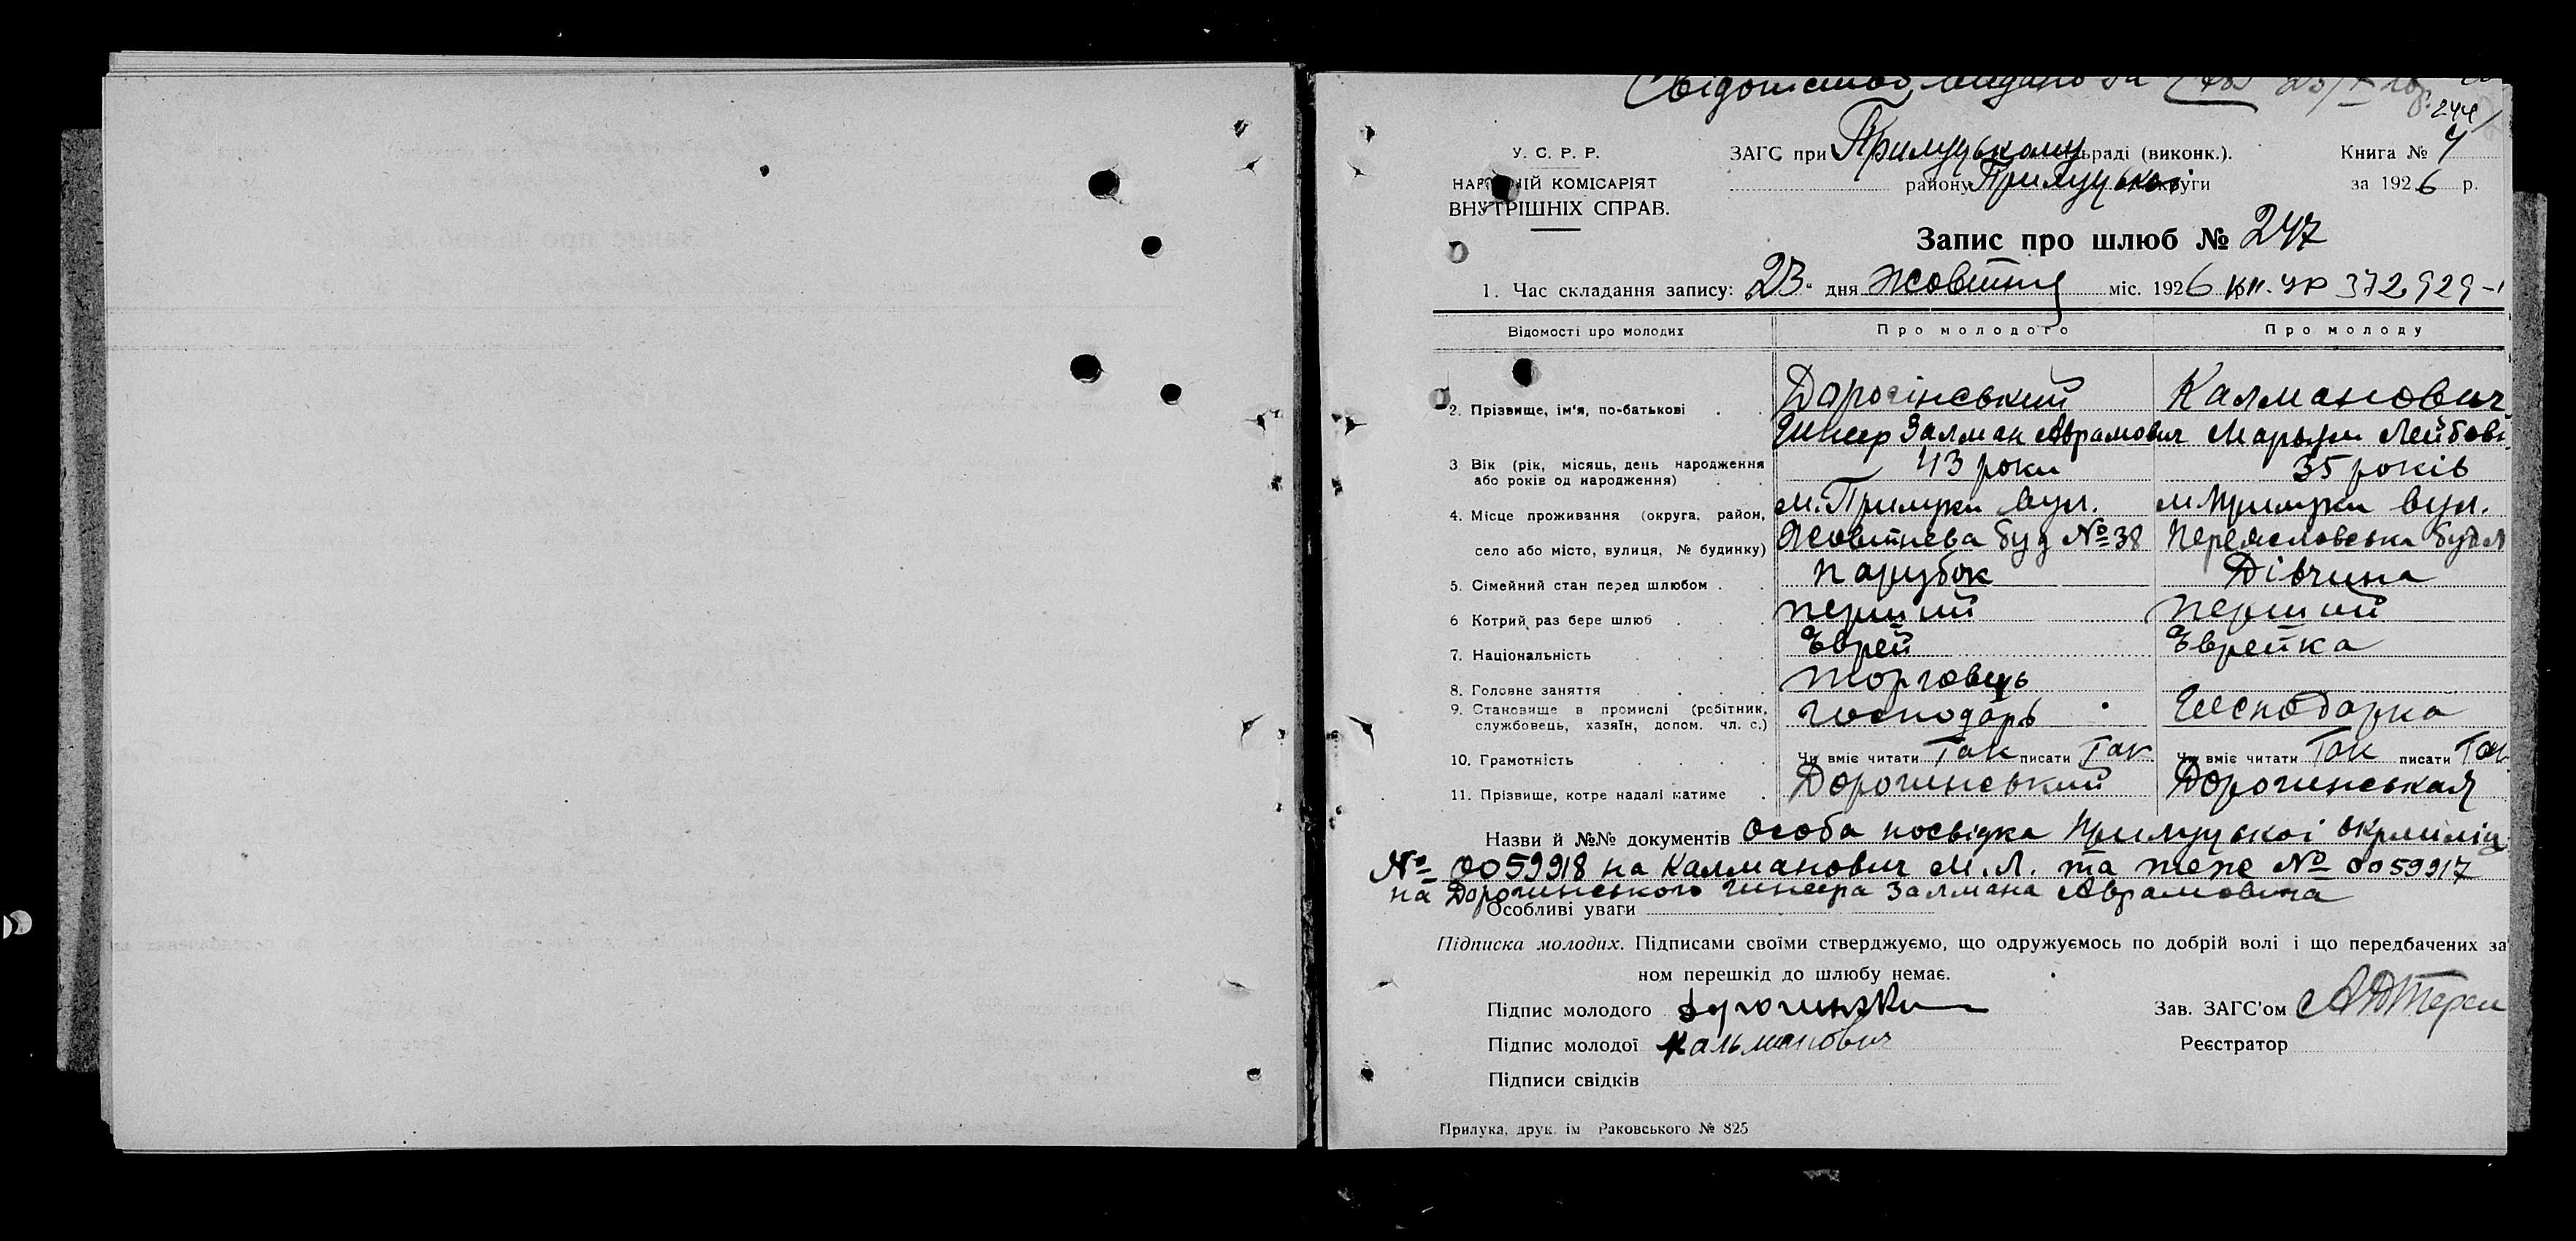 Свідоцтво видано за 23/X
244
У. С. Р. Р.
НАРОДНІЙ КОМІСАРІЯТ
ВНУТРІШНІХ СПРАВ.
ЗАГС при Прилуцькому ьраді (виконк.).
району Прилуцької округи
Книга № 4
за 1926 р.
Запис про шлюб № 247
1. Час складання запису: 23 дня жовтня міс. 1926 кв. 372929
Відомості про молодих Про молодого Про молоду
2. Прізвище, ім'я, по-батькові Дорогінський Калманович
Гинсер Залман Аврамович Марьум Лейбов
3 Вік (рік, місяць, день народження 43 роки 35 років
або років од народження)
4. Місце проживання (округа, район, м. Прилуки вул. м Прилуки вул.
село або місто, вулиця, № будинку) Жовтнева буд № 38 Переясловська буд
5. Сімейний стан перед шлюбом парубок Дівчина
6 Котрий раз бере шлюб перший перший
7. Національність Єврей Єврейка
8. Головне заняття торговець
9. Становище в промислі (робітник, господарь Господарка
службовець, хазяїн, допом. чл. с.)
10. Грамотність Чи вміє читати Так писати Так Чи вміє читати Так писати Так
11. Прізвище, котре надалі матиме Дорогинський Дорогинськая
Назви й №№ документів Особа посвідка Прилуцької окрміліц
№ 0059918 на Калманович М. Л. та теж № 0059917
на Дорогинського Гинсера Залмана Аврамовича
Особливі уваги
Підписка молодих. Підписами своїми стверджуємо, що одружуємось по добрій волі і що передбачених за
ном перешкід до шлюбу немає.
Підпис молодого Дорогински
Зав. ЗАГС'ом
Підпис молодої Кальманович
Реєстратор
Підписи свідків
Прилука, друк. ім Раковського № 825